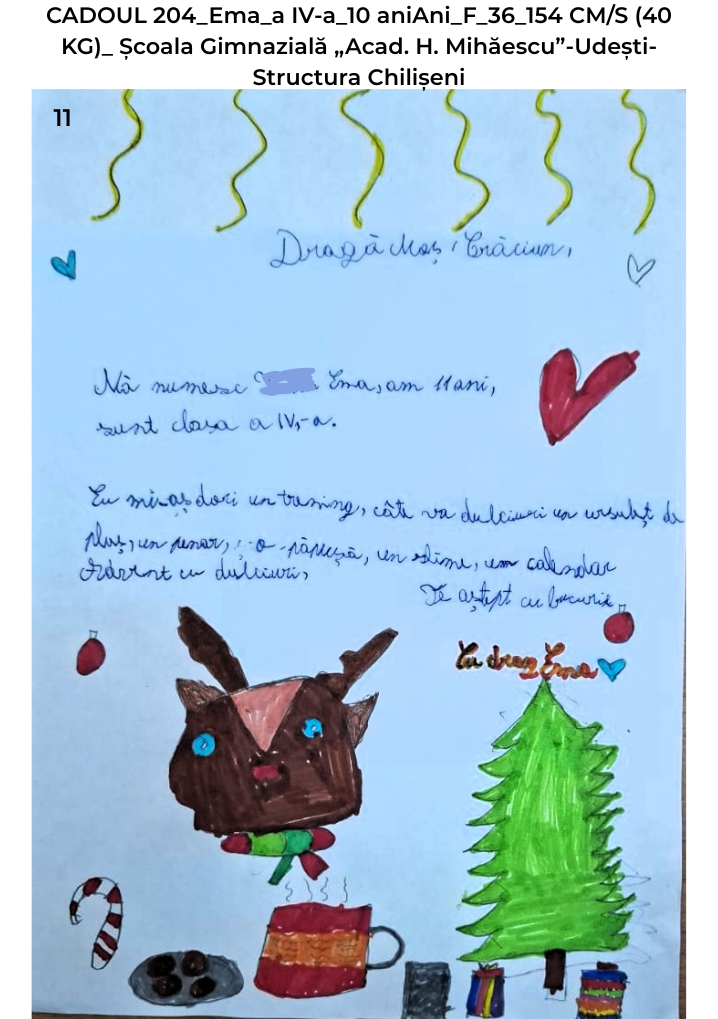 CADOUL 204_Ema_a IV-a_10 aniAni_F_36_154 CM/S (40
KG)_ Școala Gimnazială „Acad. H. Mihăescu”-Udești-
Structura Chilișeni
11
Dragă Moș Crăciun,
Mă numesc Ema, am 11 ani,
sunt clasa a IV,-a.
Eu mi-aș dori un trening, câte va dulciuri un ursuleț de
pluș, un penar, o păpușă, un slime, um calendar
Advent cu dulciuri,
Te aștept cu bucurie
Cu drag Ema